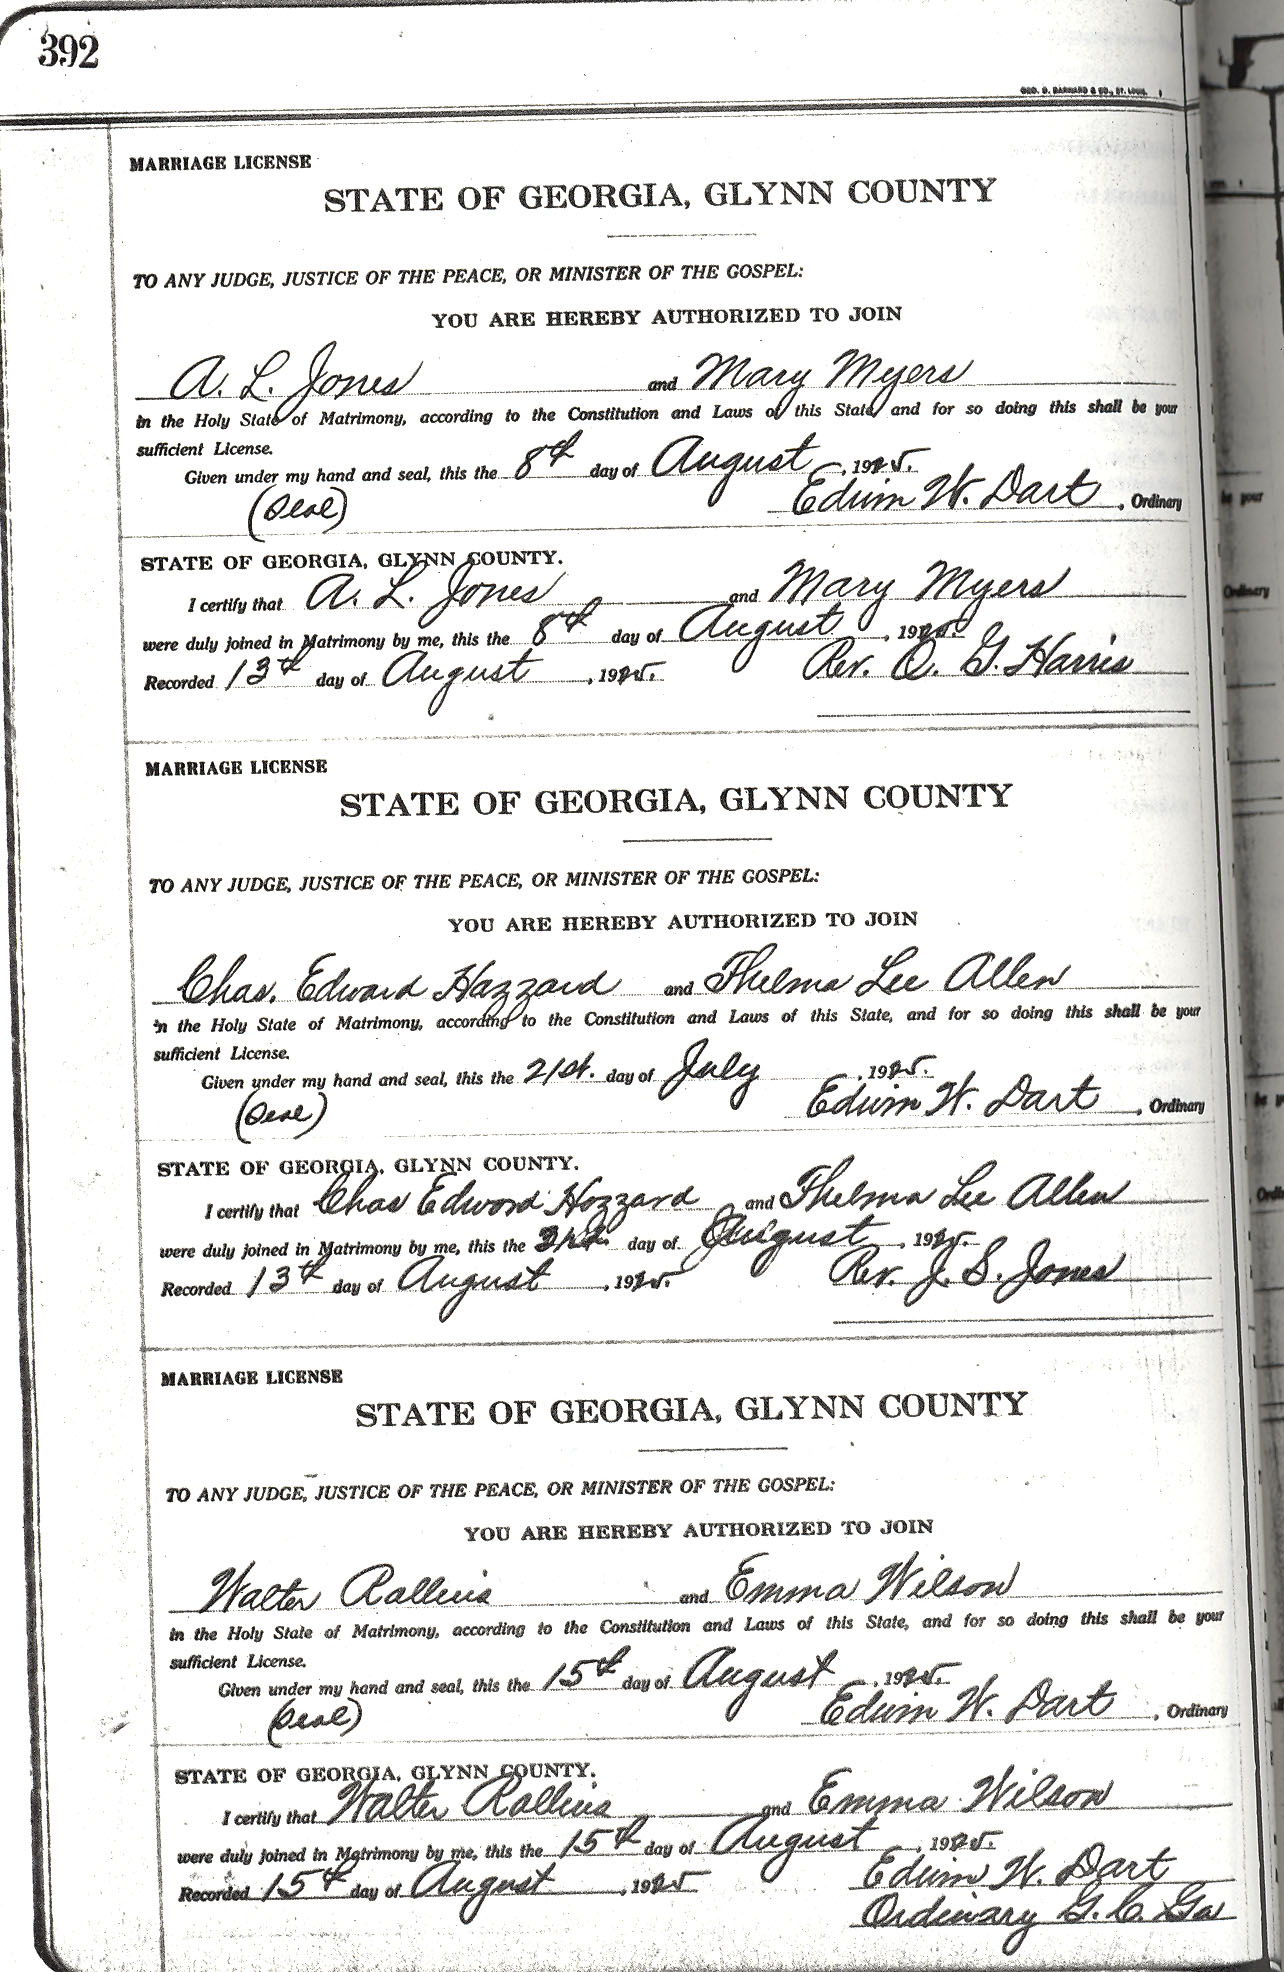 392
GEO. D. BARNARD & CO., ST. LOUIS.
MARRIAGE LICENSE
STATE OF GEORGIA, GLYNN COUNTY
TO ANY JUDGE, JUSTICE OF THE PEACE, OR MINISTER OF THE GOSPEL:
YOU ARE HEREBY AUTHORIZED TO JOIN
A. L. Jones and Mary Myers
in the Holy State of Matrimony, according to the Constitution and Laws of this State, and for so doing this shall be your
sufficient License.
Given under my hand and seal, this the 8th day of August, 1925.
(Seal) Edwin W. Dart, Ordinary
STATE OF GEORGIA, GLYNN COUNTY.
I certify that A. L. Jones and Mary Myers
were duly joined in Matrimony by me, this the 8th day of August, 1925.
Recorded 13th day of August, 1925. Rev. O. G. Harris
MARRIAGE LICENSE
STATE OF GEORGIA, GLYNN COUNTY
TO ANY JUDGE, JUSTICE OF THE PEACE, OR MINISTER OF THE GOSPEL:
YOU ARE HEREBY AUTHORIZED TO JOIN
Chas. Edward Hazzard and Thelma Lee Allen
in the Holy State of Matrimony, according to the Constitution and Laws of this State, and for so doing this shall be your
sufficient License.
Given under my hand and seal, this the 21st. day of July, 1925.
(Seal) Edwin W. Dart, Ordinary
STATE OF GEORGIA, GLYNN COUNTY.
I certify that Chas Edward Hazzard and Thelma Lee Allen
were duly joined in Matrimony by me, this the day of August, 1925.
Recorded 13th day of August, 1925. Rev. J. S. Jones
MARRIAGE LICENSE
STATE OF GEORGIA, GLYNN COUNTY
TO ANY JUDGE, JUSTICE OF THE PEACE, OR MINISTER OF THE GOSPEL:
YOU ARE HEREBY AUTHORIZED TO JOIN
Walter Rollins and Emma Wilson
in the Holy State of Matrimony, according to the Constitution and Laws of this State, and for so doing this shall be your
sufficient License.
Given under my hand and seal, this the 15th day of August, 1925.
(Seal) Edwin W. Dart, Ordinary
STATE OF GEORGIA, GLYNN COUNTY.
I certify that Walter Rollins and Emma Wilson
were duly joined in Matrimony by me, this the 15th day of August, 1925.
Recorded 15th day of August, 1925 Edwin W. Dart
Ordinary G. C. Ga